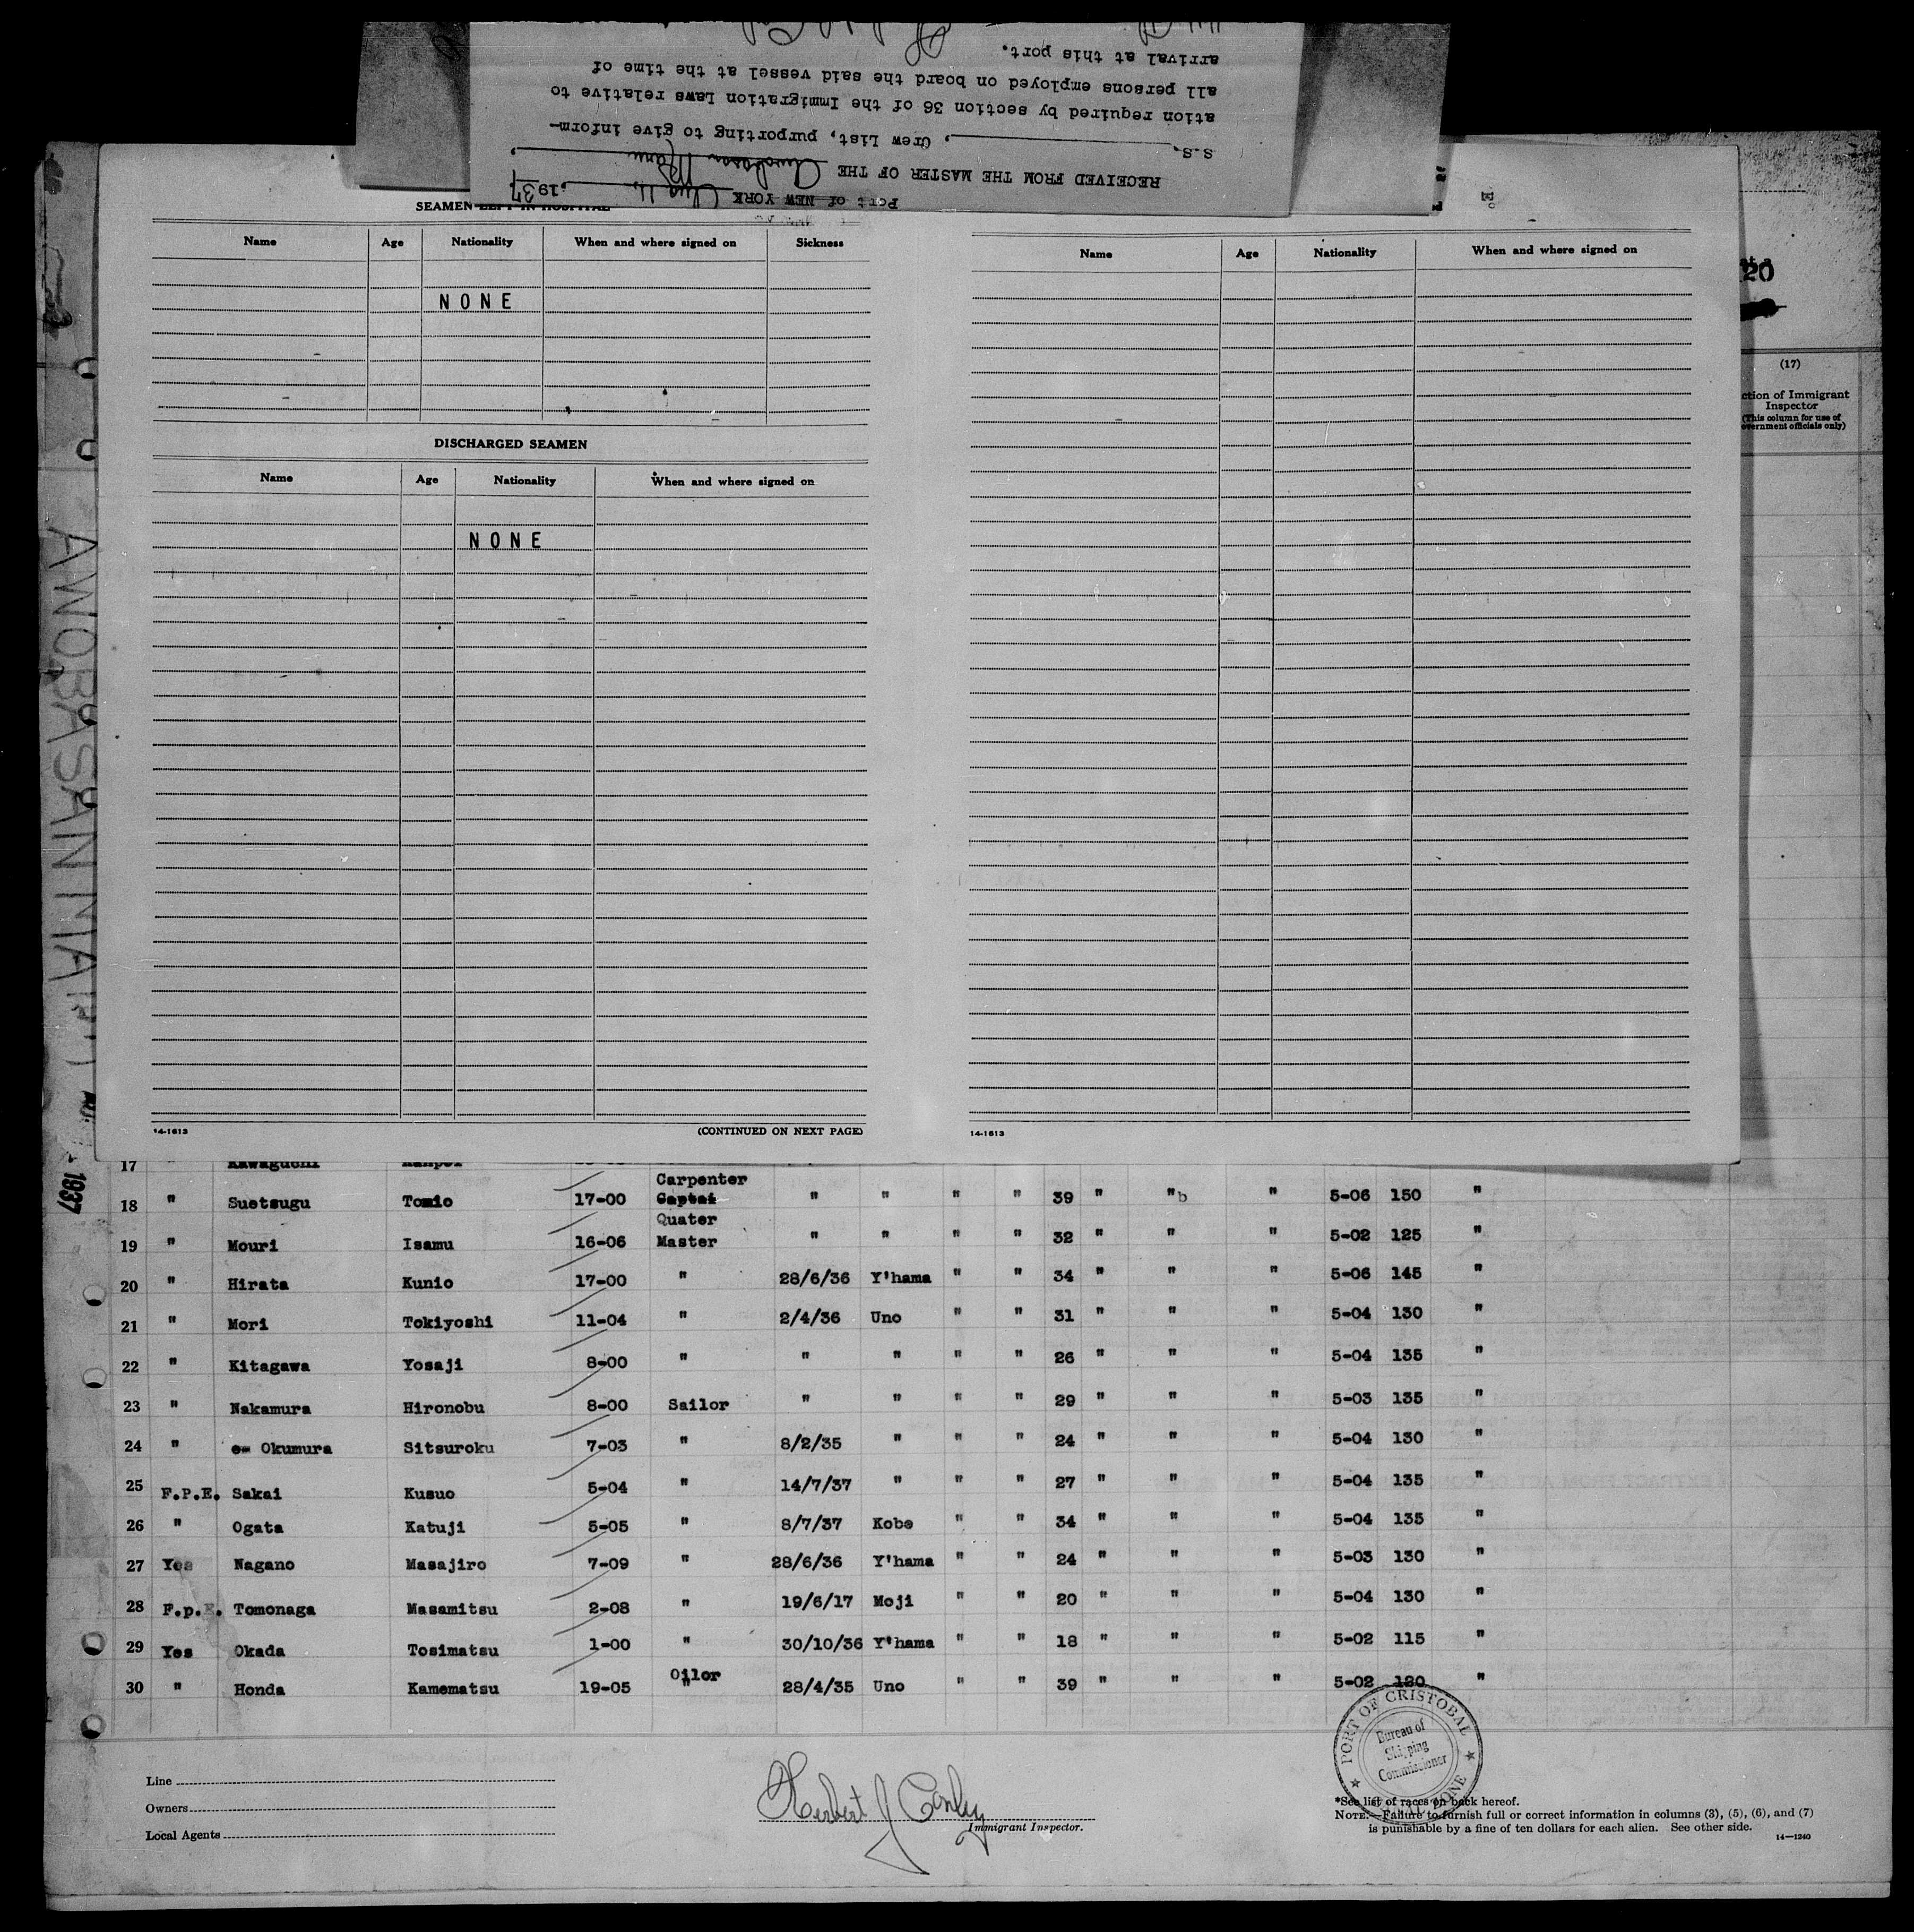 Port of NEW YORK Aug 11, 1937
RECEIVED FROM THE MASTER OF THE
S.S. , Crew List, purporting to give inform-
ation required by section 36 of the Immigration Laws relative to
all persons employed on board the said vessel at the time of
arrival at this port.
SEAMEN LEFT IN HOSPITAL
Name Age Nationality When and where signed on Sickness
NONE
DISCHARGED SEAMEN
Name Age Nationality When and where signed on
NONE
14-1613 (CONTINUED ON NEXT PAGE)
Name Age Nationality When and where signed on
14-1613
20
(17)
ction of Immigrant
Inspector
(This column for use of
overnment officials only)
AWOBASAN MARU
1937
17 " Kawaguchi
Carpenter
18 " Suetsugu Tomio 17-00 " " " " 39 " " b " 5-06 150 "
Quater
19 " Mouri Isamu 16-06 Master " " " " 32 " " " 5-02 125 "
20 " Hirata Kunio 17-00 " 28/6/36 Y'hama " " 34 " " " 5-06 145 "
21 " Mori Tokiyoshi 11-04 " 2/4/36 Uno " " 31 " " " 5-04 130 "
22 " Kitagawa Yosaji 8-00 " " " " " 26 " " " 5-04 135 "
23 " Nakamura Hironobu 8-00 Sailor " " " " 29 " " " 5-03 135 "
24 " Okumura Sitsuroku 7-03 " 8/2/35 " " " 24 " " " 5-04 130 "
25 F.P.E. Sakai Kusuo 5-04 " 14/7/37 " " " 27 " " " 5-04 135 "
26 " Ogata Katuji 5-05 " 8/7/37 Kobe " " 34 " " " 5-04 135 "
27 Yes Nagano Masajiro 7-09 " 28/6/36 Y'hama " " 24 " " " 5-03 130 "
28 F.p.E. Tomonaga Masamitsu 2-08 " 19/6/17 Moji " " 20 " " " 5-04 130 "
29 Yes Okada Tosimatsu 1-00 " 30/10/36 Y'hama " " 18 " " " 5-02 115 "
30 " Honda Kamematsu 19-05 Oilor 28/4/35 Uno " " 39 " " " 5-02 120 "
PORT OF CRISTOBAL
Bureau of
Shipping
Commissioner
Line
Owners
Local Agents
Herbert J Conley
Immigrant Inspector.
*See list of races on back hereof.
NOTE.—Failure to furnish full or correct information in columns (3), (5), (6), and (7)
is punishable by a fine of ten dollars for each alien. See other side.
14—1240